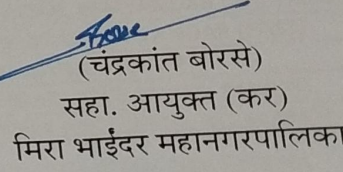 (चंद्रकांत बोरसे)
सहा. आयुक्त (कर)
मिरा भाईंदर महानगरपालिका